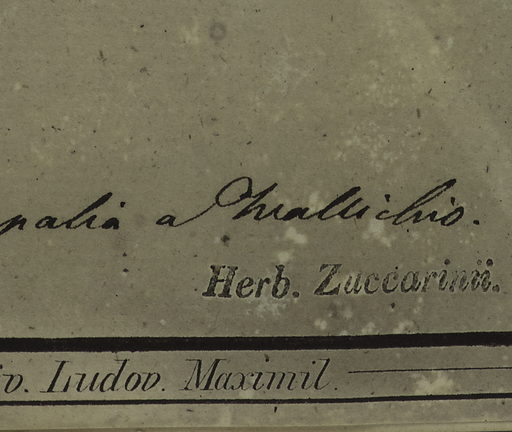 palia a Wallichio.
Herb. Zuccarinii.
iv. Ludov. Maximil.